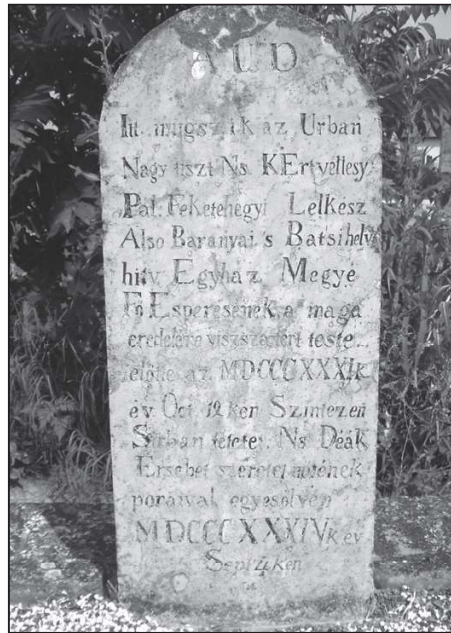 AUD
Itt nyugszik az Urban
Nagy tiszt Ns KErtvéllesy
Pal. Feketehegyi Lelkész
Also Baranyai s Batsihelv
hitv Egyház Megye
Fő Esperesének, a maga
eredetére viszsza tért teste
az MDCCCXXXIk
év Oct 12 ken Szintezen
Sirban tetetet Ns Deák
Ersebet szeretet
poraival egyesölvén
MDCCCXXXIVk év
Sept 4 ken